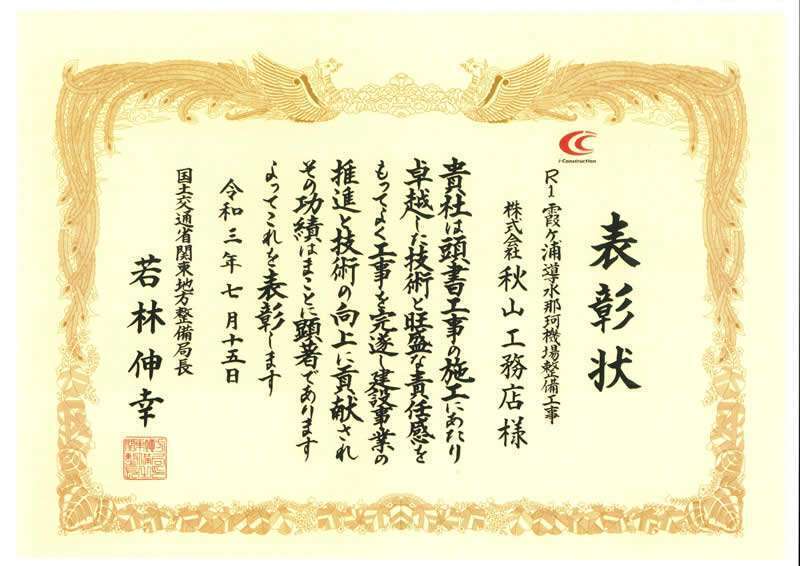 表彰状
i-Construction
R1霞ヶ浦導水那珂機場整備工事
株式会社 秋山工務店様
貴社は頭書工事の施工にあたり
卓越した技術と旺盛な責任感を
もってよく工事を完遂し建設事業の
推進と技術の向上に貢献され
その功績はまことに顕著であります
よってこれを表彰します
令和三年七月十五日
国土交通省関東地方整備局長
若林伸幸